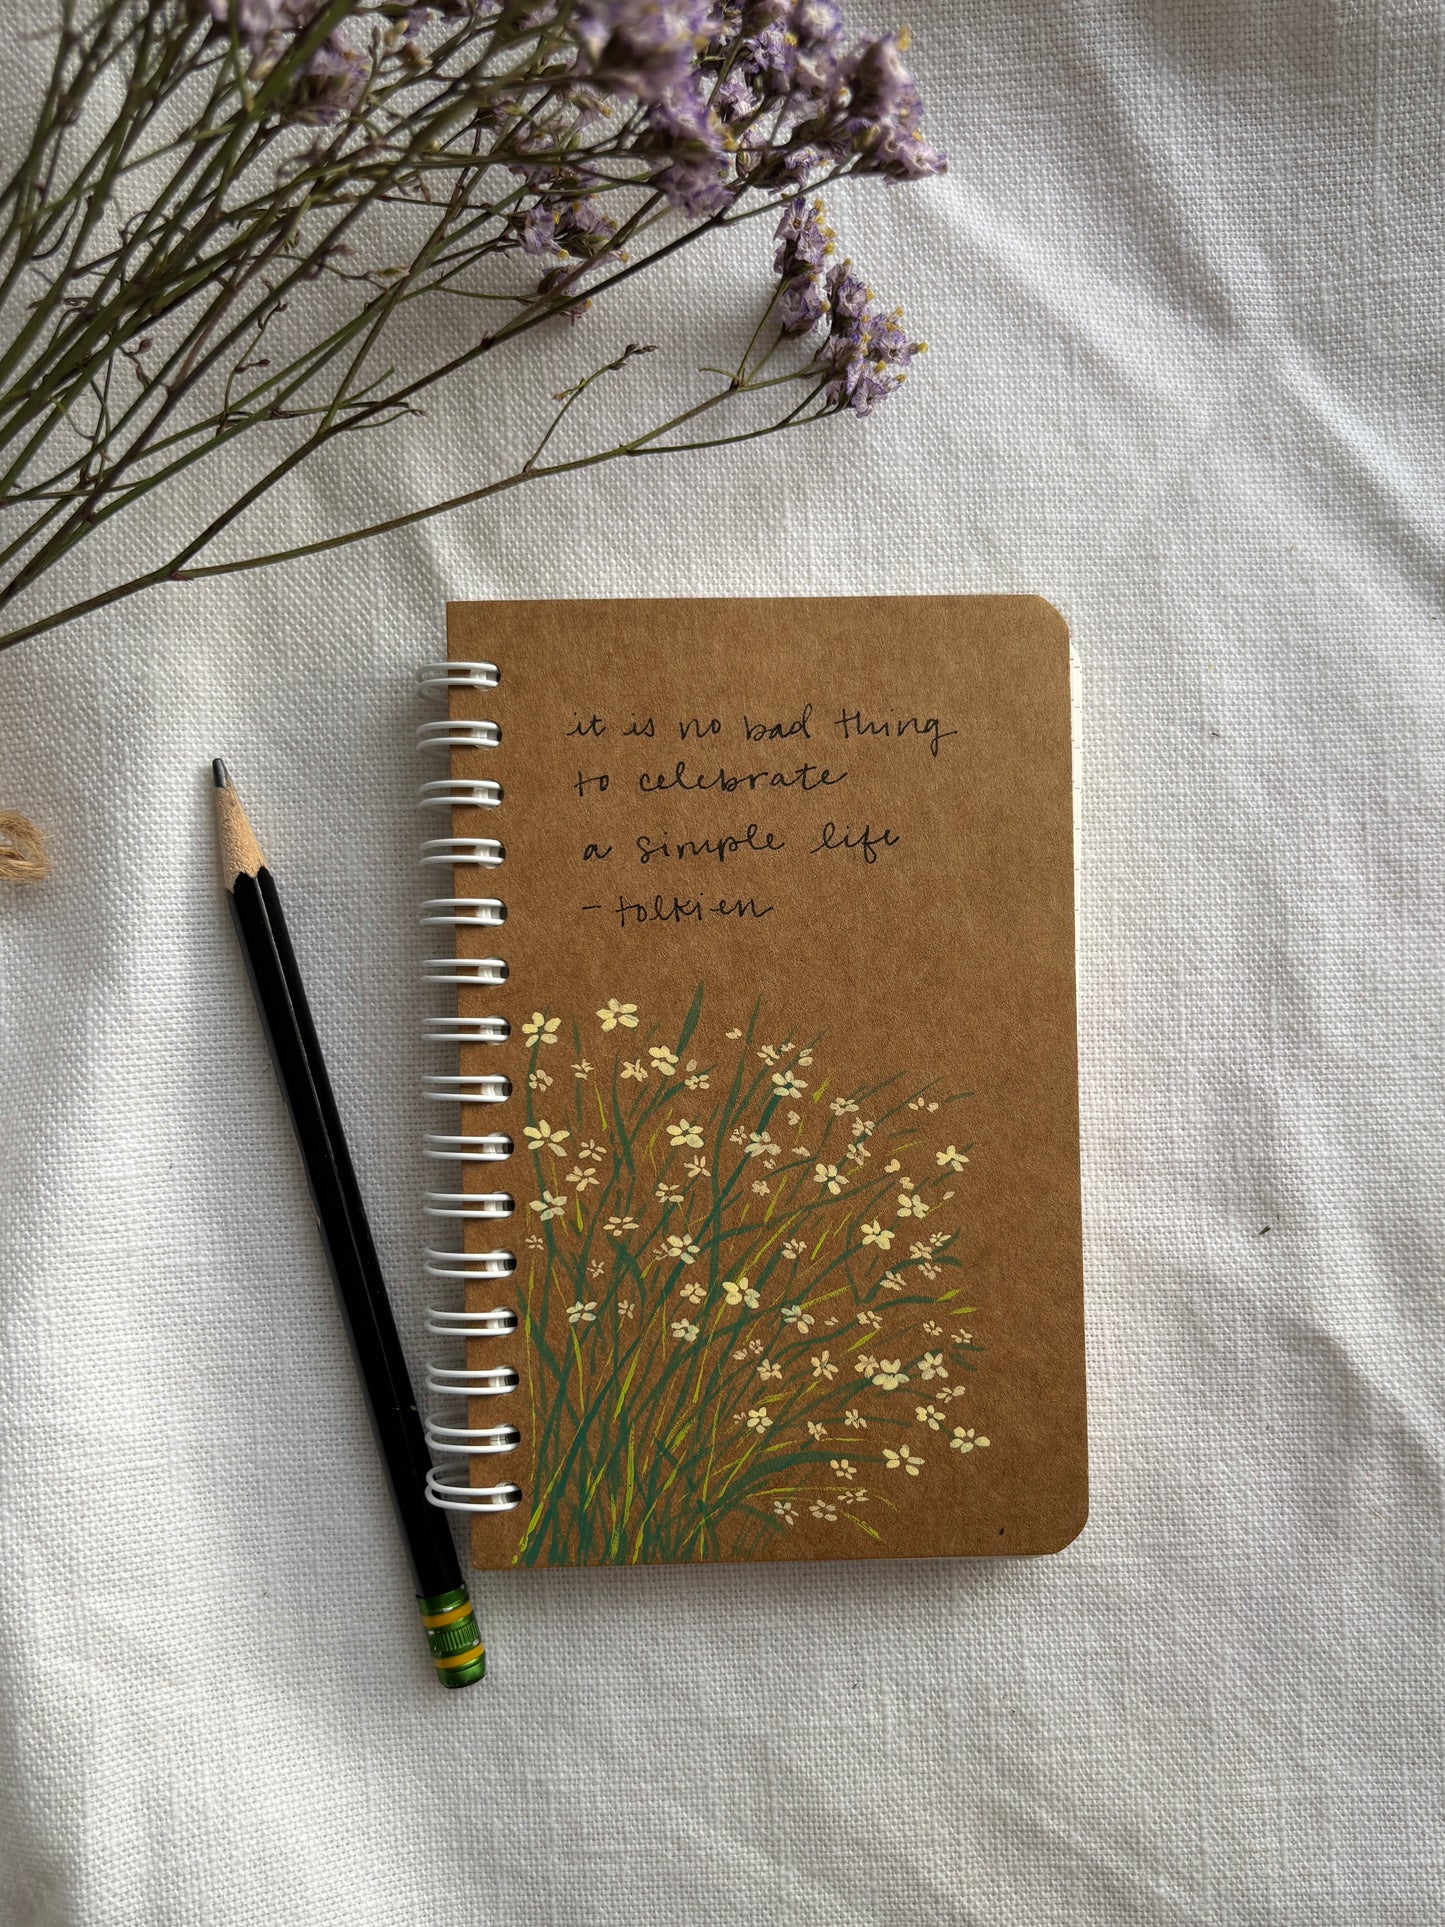 it is no bad thing
to celebrate
a simple life
- tolkien